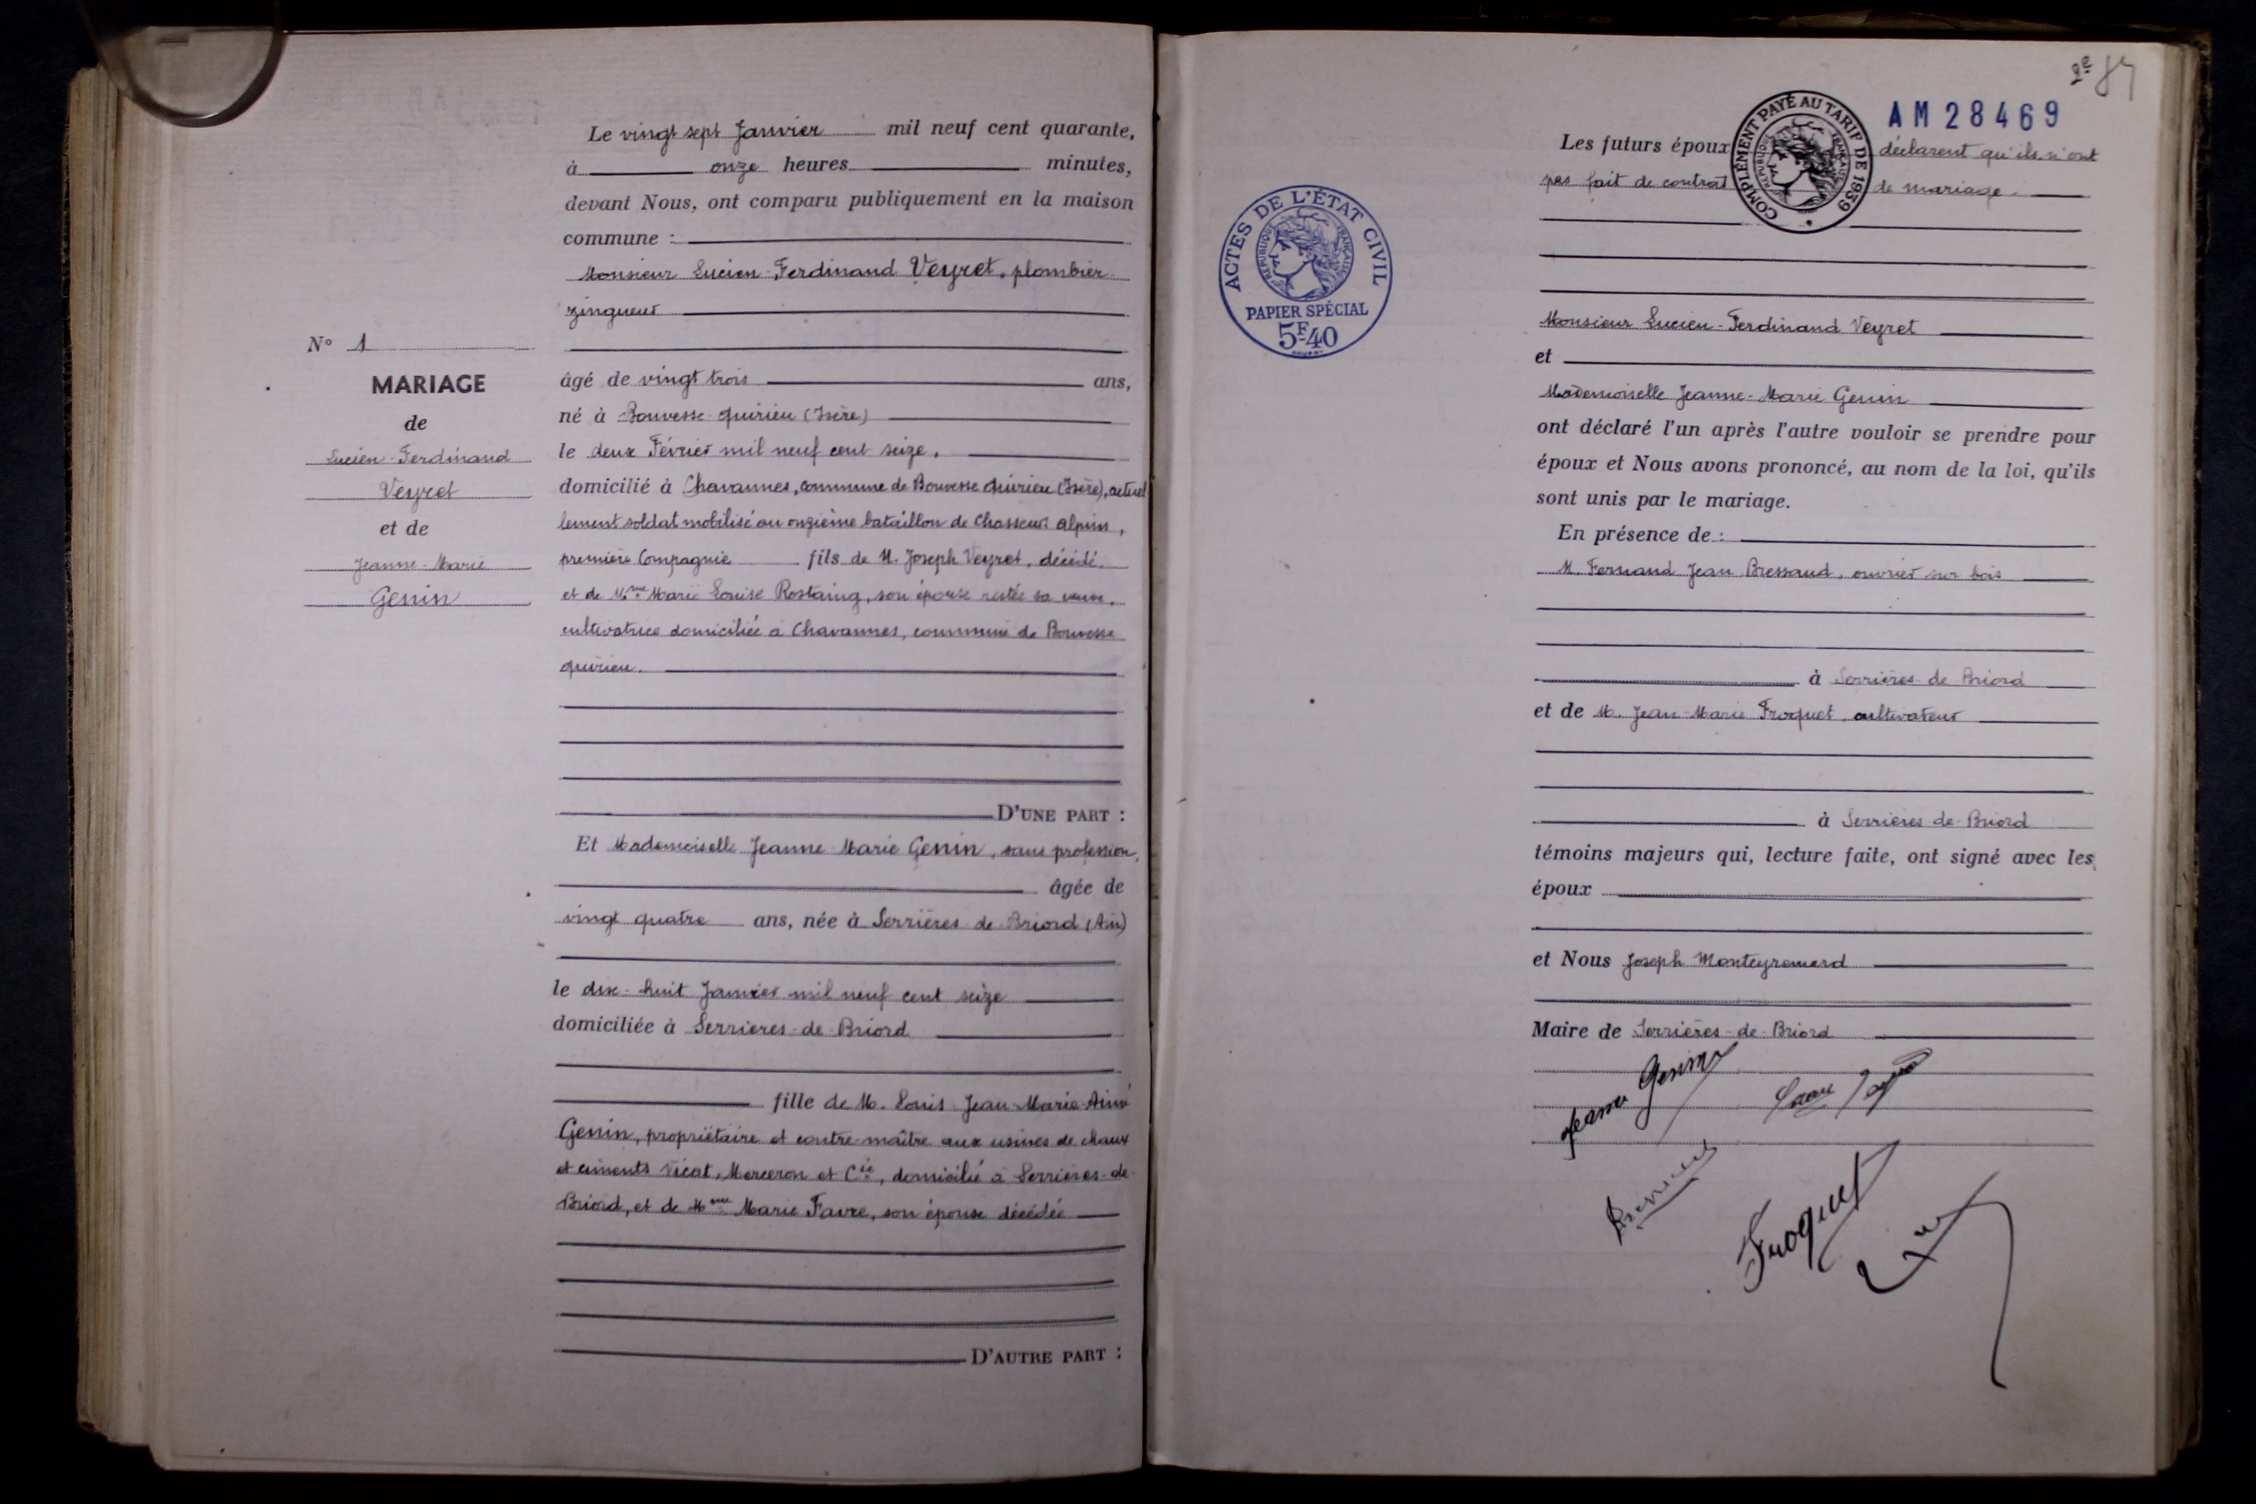 Le vingt sept Janvier mil neuf cent quarante,
à onze heures minutes,
devant Nous, ont comparu publiquement en la maison
commune :
Monsieur Lucien-Ferdinand Veyret, plombier
zingueur
N° 1
MARIAGE
de
Lucien-Ferdinand
Veyret
et de
Jeanne-Marie
Genin
âgé de vingt trois ans,
né à Bouvesse-Quirieu (Isère)
le deux Février mil neuf cent seize,
domicilié à Chavannes, commune de Bouvesse Quirieu (Isère), actuel
lement soldat mobilisé au onzième bataillon de Chasseurs alpins,
première Compagnie fils de M. Joseph Veyret, décédé,
et de Mme Marie Louise Rostaing, son épouse restée sa veuve,
cultivatrice domiciliée à Chavannes, commune de Bouvesse
Quirieu.
D'UNE PART :
Et Mademoiselle Jeanne-Marie Genin, sans profession,
âgée de
vingt quatre ans, née à Serrières-de-Briord (Ain)
le dix-huit Janvier mil neuf cent seize
domiciliée à Serrières-de-Briord
fille de M. Louis-Jean-Marie-Aimé
Genin, propriétaire et contre-maître aux usines de chaux
et ciments Vicat, Merceron et Cie, domicilié à Serrières-de-
Briord, et de Mme Marie Favre, son épouse décédée
D'AUTRE PART :
2e 87
AM 28469
COMPLÉMENT PAYÉ AU TARIF DE 1939
RÉPUBLIQUE FRANÇAISE
Les futurs époux déclarent qu'ils n'ont
pas fait de contrat de mariage.
ACTES DE L'ÉTAT CIVIL
RÉPUBLIQUE FRANÇAISE
PAPIER SPÉCIAL
5F40
Monsieur Lucien-Ferdinand Veyret
et
Mademoiselle Jeanne-Marie Genin
ont déclaré l'un après l'autre vouloir se prendre pour
époux et Nous avons prononcé, au nom de la loi, qu'ils
sont unis par le mariage.
En présence de :
M. Fernand Jean Bressaud, ouvrier sur bois
à Serrières-de-Briord
et de M. Jean-Marie Froquet, cultivateur
à Serrières-de-Briord
témoins majeurs qui, lecture faite, ont signé avec les
époux
et Nous Joseph Monteyremard
Maire de Serrières-de-Briord
Jeanne Genin
Froquet